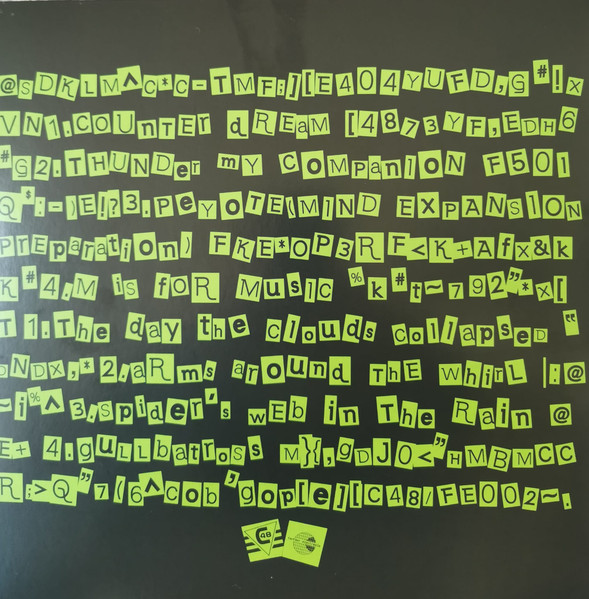 @SDKLM^C*C-TMF:][E404YUFD,G#!x
VN1.COUNTER dREaM [4873YF,EDH6
#G2.THUNDer mY COmPanION F501
Q*:-)E!?3.PeYOTE(MIND EXPANSION
PrEparation) FKE*OP3RF<K+Afx&k
K#4.M is foR Music %k#t~792"*x[
T1.The day the clouds collapseD "
DNDX,*2.aRms around THE WhirL |:@
~i%^3.Spider's wEb in The Rain @
E+ 4.gULLbatross M}{,gDJ0<"HMBMCC
R:>Q"7(6^Cob'gop[e][C48/FE002~.
C48